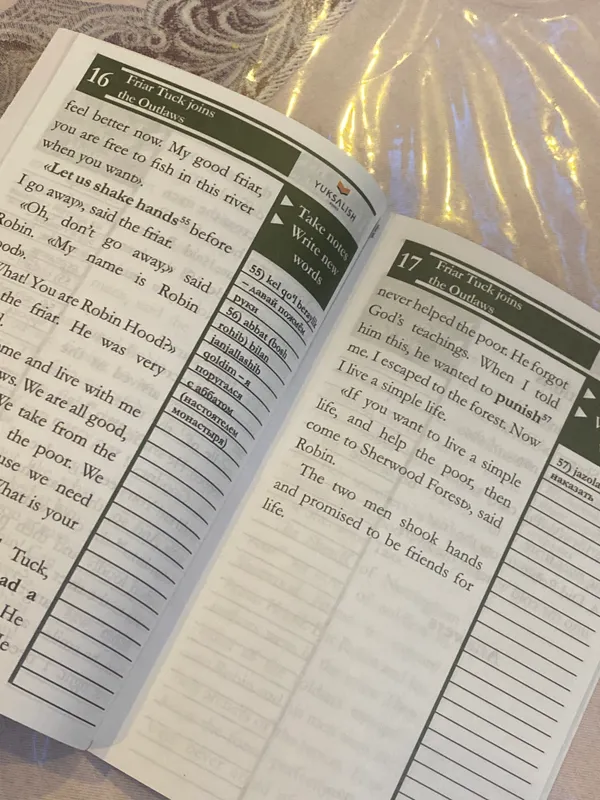 16
Friar Tuck joins
the Outlaws
feel better now. My good friar,
you are free to fish in this river
when you want».
«Let us shake hands⁵⁵ before
I go away», said the friar.
«Oh, don't go away,» said
Robin. «My name is Robin
What! You are Robin Hood?»
the friar. He was very
me and live with me
ws. We are all good,
We take from the
the poor. We
use we need
What is your
Tuck,
ad a
He
YUKSALISH
Take notes
Write new
words
55) kel qo'l beraylik
– давай пожмём
руки
56) abbat (bosh
rohib) bilan
janjallashib
qoldim – я
поругался
с аббатом
(настоятелем
монастыря)
17
Friar Tuck joins
the Outlaws
never helped the poor. He forgot
God's teachings. When I told
him this, he wanted to punish⁵⁷
me. I escaped to the forest. Now
I live a simple life.
«If you want to live a simple
life, and help the poor, then
come to Sherwood Forest», said
Robin.
The two men shook hands
and promised to be friends for
life.
57) jazola
наказать